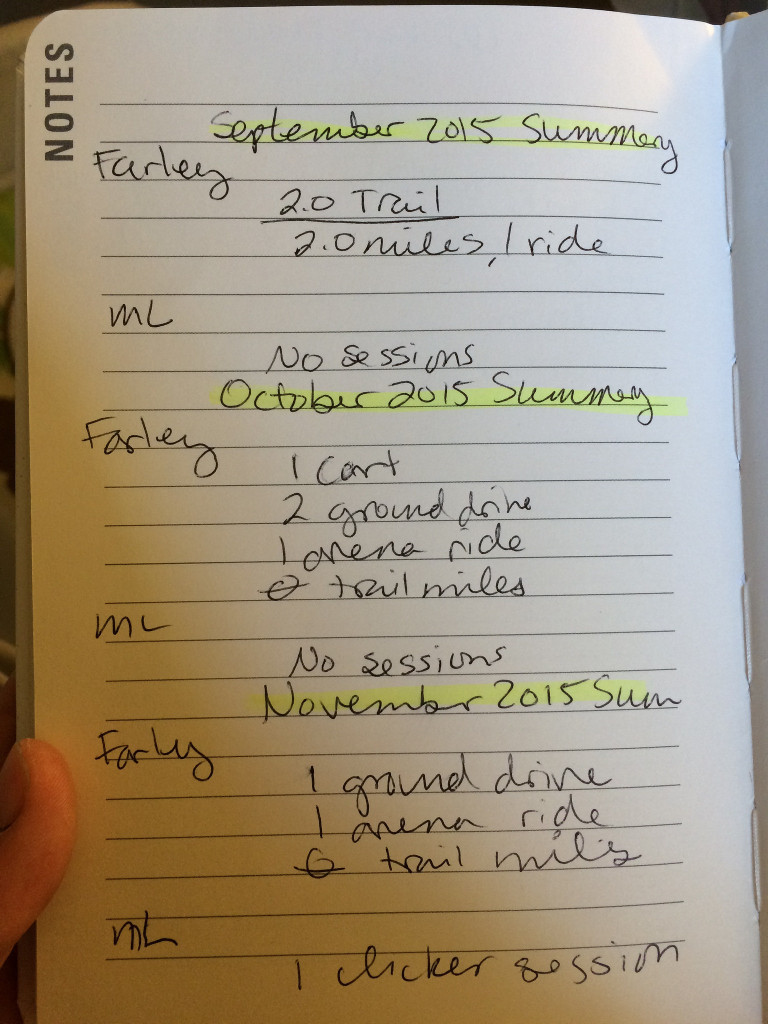 NOTES
September 2015 Summery
Farley
2.0 Trail
2.0 miles, 1 ride
mL
No sessions
October 2015 Summery
Farley
1 Cart
2 ground drive
1 arena ride
0 trail miles
mL
No sessions
November 2015 Sum
Farley
1 ground drive
1 arena ride
0 trail miles
mL
1 clicker session